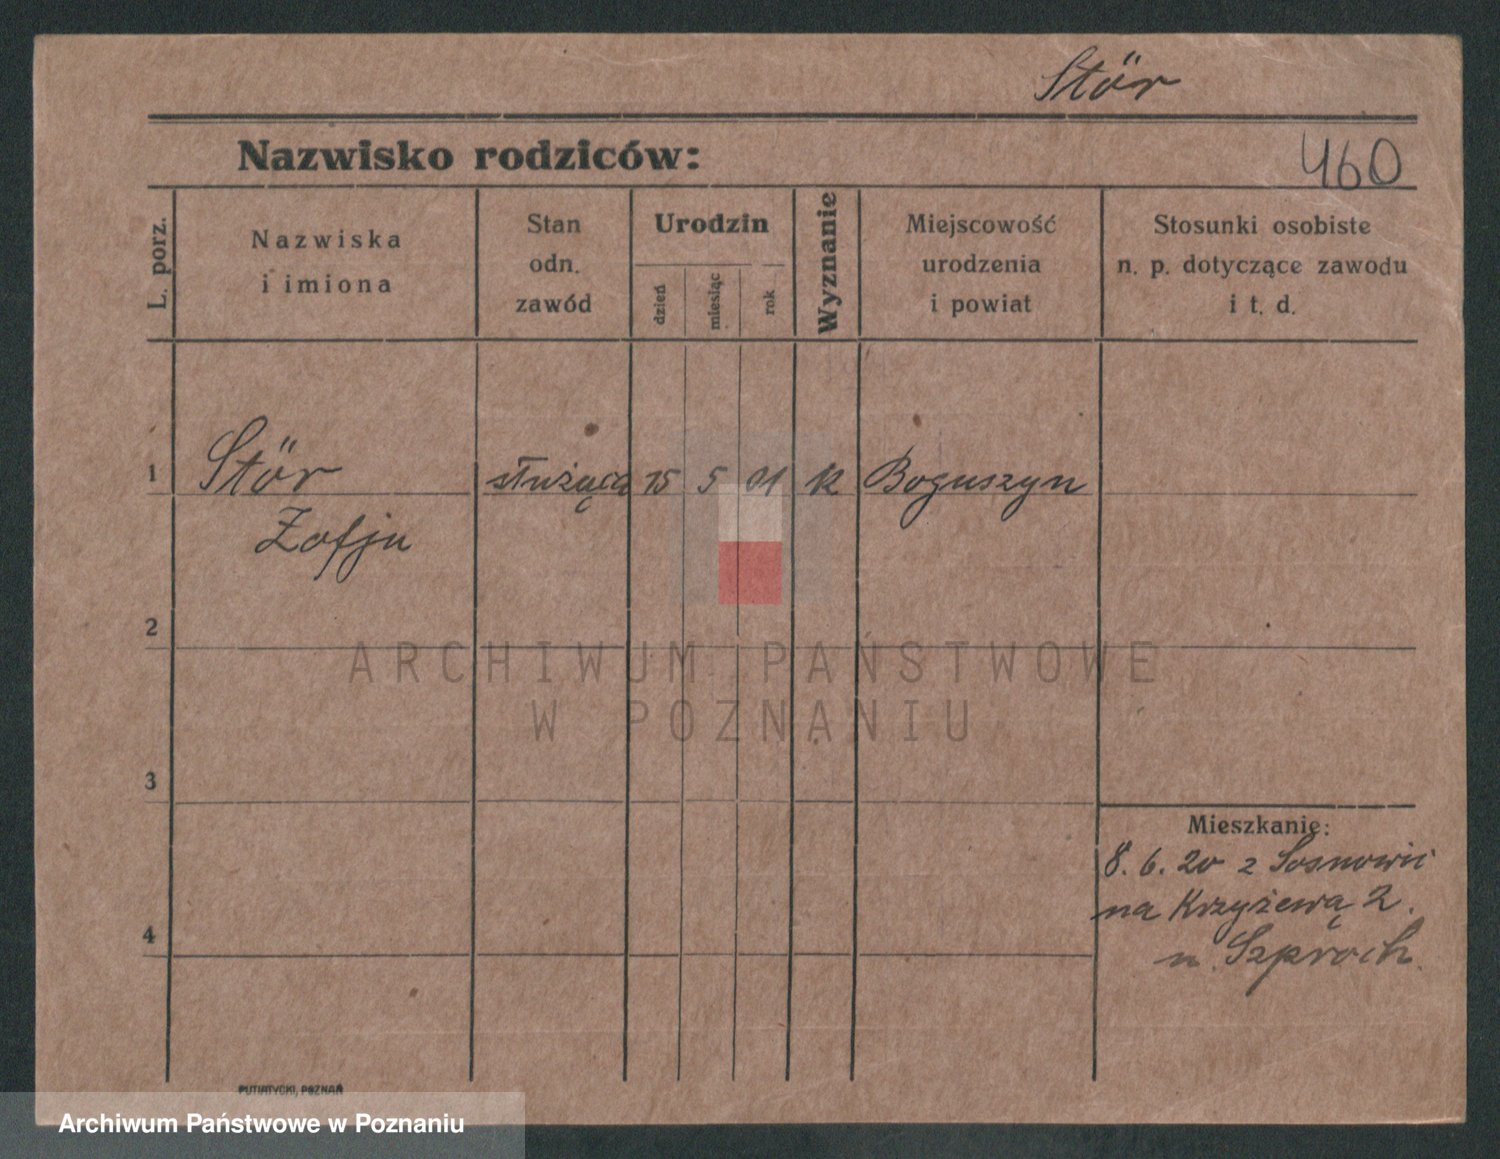 Stör
Nazwisko rodziców:
460
L. porz.
Nazwiska
i imiona
Stan
odn.
zawód
Urodzin
dzień
miesiąc
rok
Wyznanie
Miejscowość
urodzenia
i powiat
Stosunki osobiste
n. p. dotyczące zawodu
i t. d.
1 Stör służąca 15 5 01 k Boguszyn
Zofja
2
3
4
Mieszkanie:
8. 6. 20 z
na Krzyżewą 2.
u Szproch.
PUTIATYCKI, POZNAŃ
ARCHIWUM PAŃSTWOWE
W POZNANIU
Archiwum Państwowe w Poznaniu